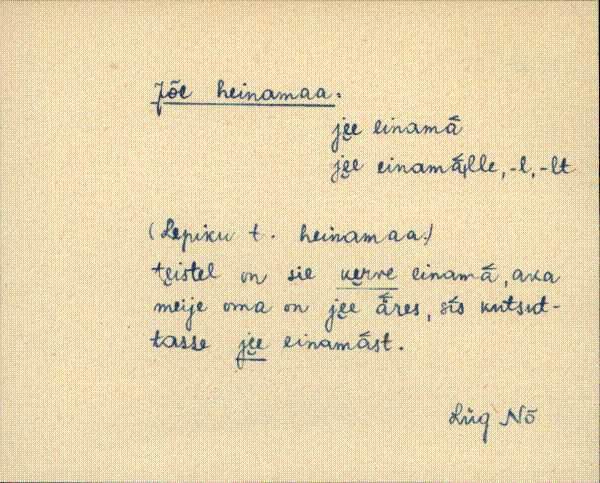 Jõe heinamaa.
jẹe einamā́
jẹe einamā́lle, -l, -lt
(Lepiku t. heinamaa.)
tẹistel on sie kẹrve einamā́, aka
meije oma on jẹe ā́res, sī́s kutsut-
tasse jẹe einamā́st.
Lüg Nõ